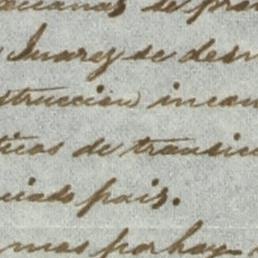 de
Juarez se des
struccion incan
ticas de transic
ciado pais.
mas por hay